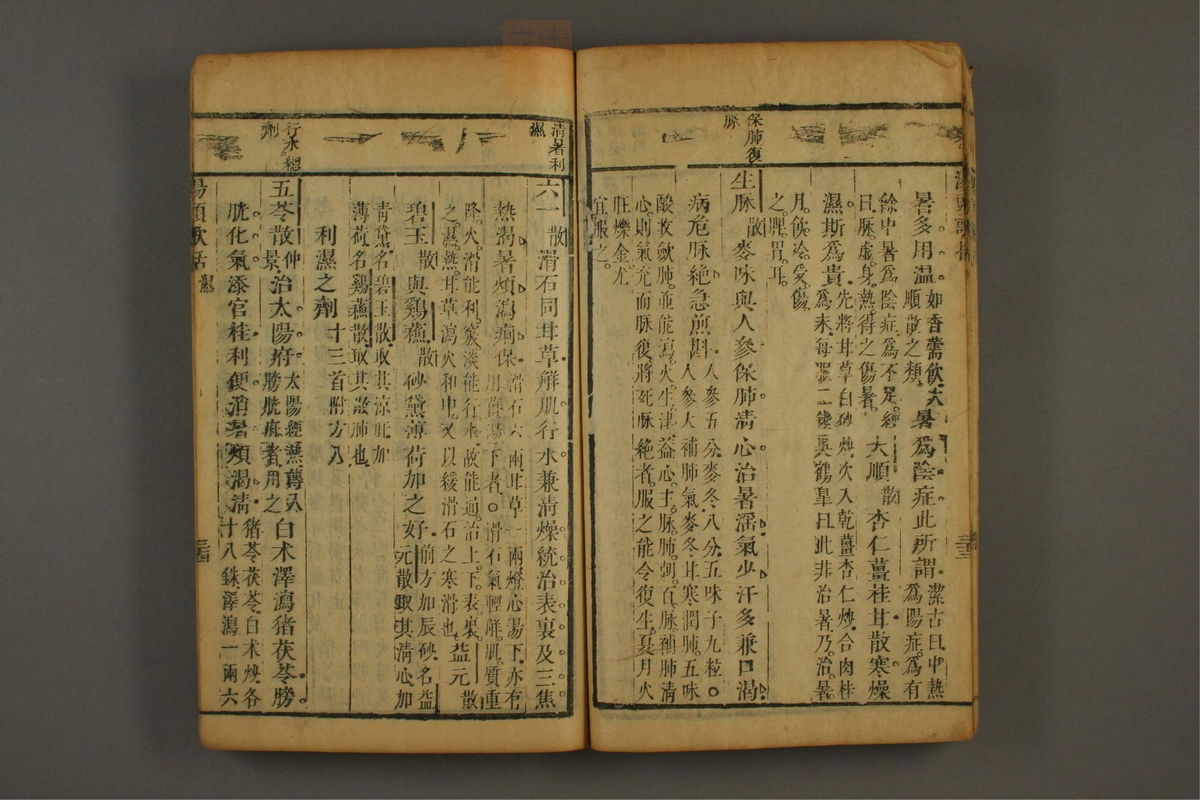 湯頭歌括
三十三
保肺復脉
暑多用温如香薷飲大順散之類。暑爲陰症此所謂潔古曰中熱爲陽症爲有
餘中暑爲陰症爲不足經曰脈虛身熱得之傷暑。大順散杏仁薑桂甘散寒燥
濕斯爲貴先將甘草白砂炒次入乾薑杏仁炒合肉桂爲末每服二錢吳鶴臯曰此非治暑乃治暑
月飲冷受傷之脾胃耳。
生脉散麥味與人參保肺清心治暑淫氣少汗多兼口渴
病危脉絕急煎斟人參五分麥冬八分五味子九粒○人參大補肺氣麥冬甘寒潤肺五味
酸收斂肺並能瀉火生津益心主脉肺朝百脉補肺清心則氣充而脉復將死脉絕者服之能令復生夏月火
旺爍金尤宜服之。
清暑利濕
六一散滑石同甘草解肌行水兼清燥統治表裏及三焦
熱渴暑煩瀉痢保滑石六兩甘草一兩燈心湯下亦有用薑湯下者○滑石氣輕解肌質重
降火滑能利竅淡能行水故能通治上下表裏之濕熱甘草瀉火和中又以緩滑石之寒滑也益元散
碧玉散與雞蘇散砂黛薄荷加之好前方加辰砂名益元散取其清心加
青黛名碧玉散取其涼肝加薄荷名雞蘇散取其散肺也
利濕之劑十三首附方八
行水總劑
五苓散仲景治太陽府太陽經熱傳入膀胱府者用之白朮澤瀉猪茯苓膀
胱化氣添官桂利便消暑煩渴清猪苓茯苓白朮炒各十八銖澤瀉一兩六
湯頭歌括 濕
三十四